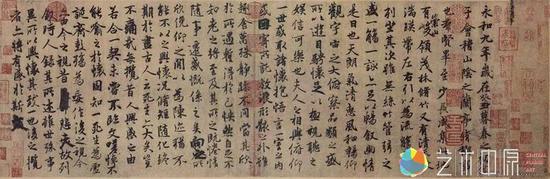 永和九年歲在癸丑暮春之初會
于會稽山陰之蘭亭脩稧事
也羣賢畢至少長咸集此地
有崇山峻領茂林脩竹又有清流激
湍暎帶左右引以為流觴曲水
列坐其次雖無絲竹管弦之
盛一觴一詠亦足以暢敘幽情
是日也天朗氣清惠風和暢仰
觀宇宙之大俯察品類之盛
所以遊目騁懷足以極視聽之
娛信可樂也夫人之相與俯仰
一世或取諸懷抱悟言一室之內
或因寄所託放浪形骸之外雖
趣舍萬殊靜躁不同當其欣
於所遇蹔得於己怏然自足不
知老之將至及其所之既惓情
隨事遷感慨係之矣向之所
欣俛仰之閒以為陳迹猶不
能不以之興懷況脩短隨化終
期於盡古人云死生亦大矣豈
不痛哉每攬昔人興感之由
若合一契未嘗不臨文嗟悼不
能喻之於懷固知一死生為虛
誕齊彭殤為妄作後之視今
亦由今之視昔悲夫故列
敘時人錄其所述雖世殊事
異所以興懷其致一也後之攬
者亦將有感於斯文
艺术中原